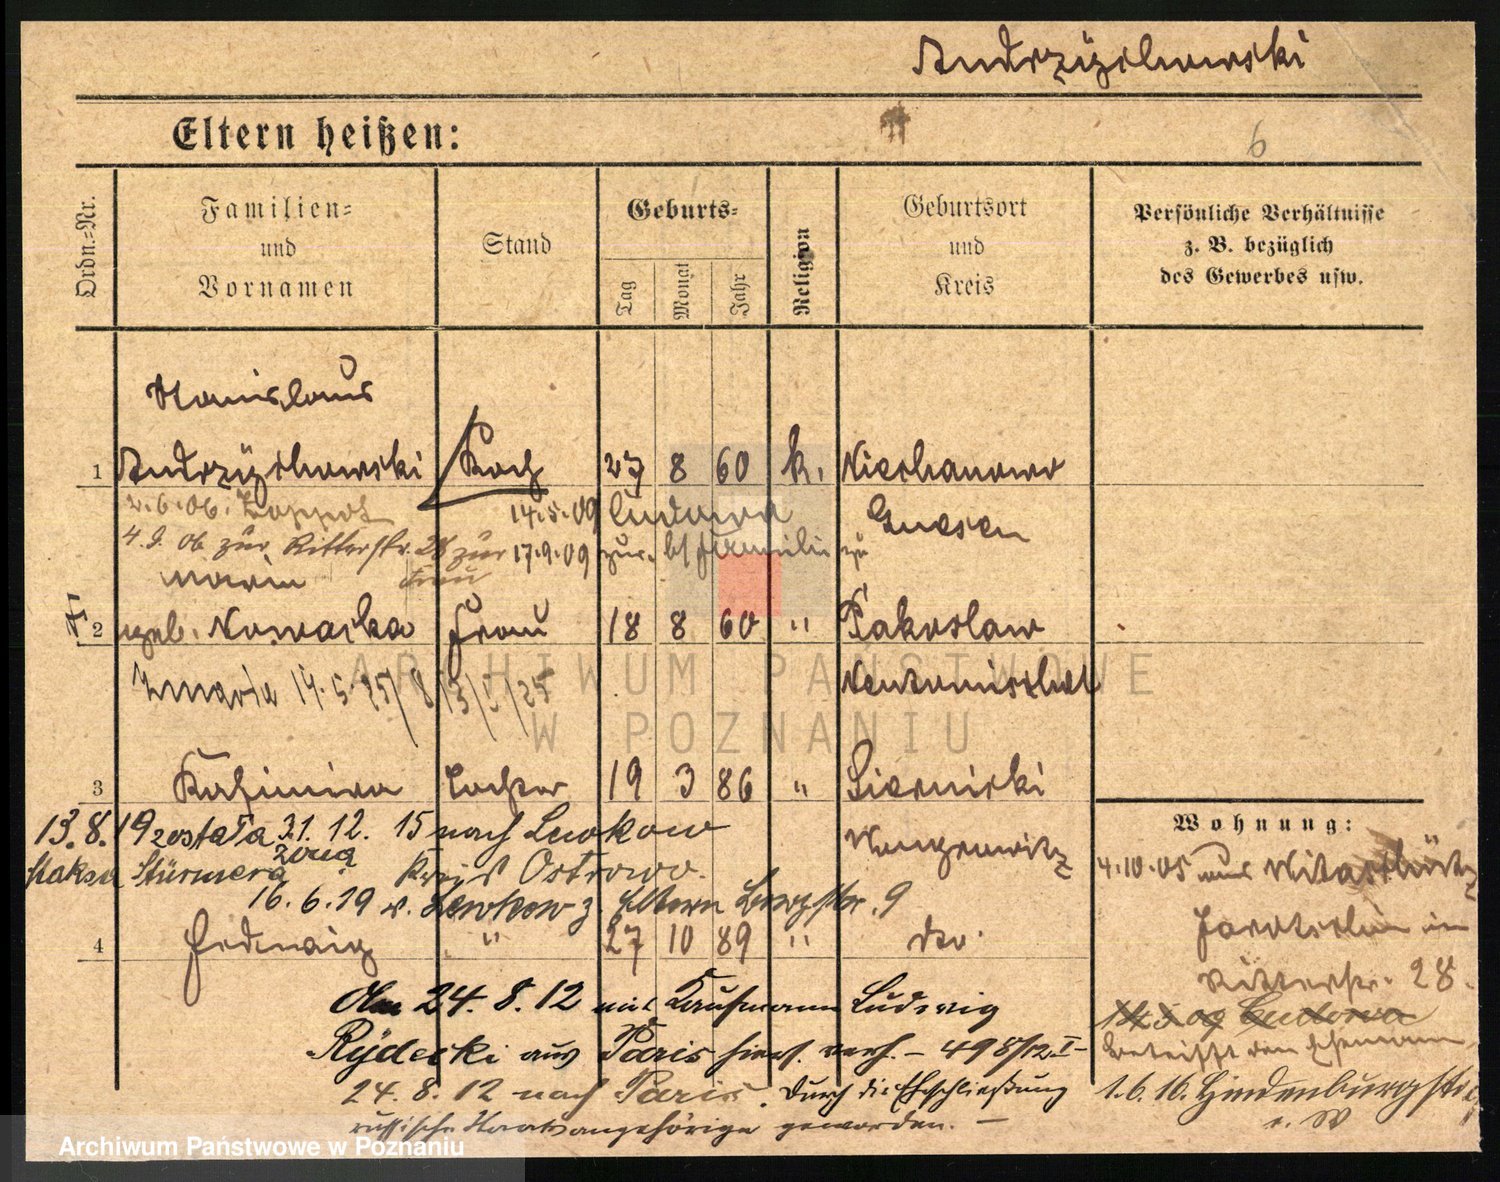 Andrzÿchowski
Eltern heißen:
6
Ordn.=Nr.
Familien=
und
Vornamen
Stand
Geburts=
Tag
Monat
Jahr
Religion
Geburtsort
und
Kreis
Persönliche Verhältnisse
z. B. bezüglich
des Gewerbes usw.
Stanislaus
1 Andrzÿchowski Koch 27 8 60 k. Niechanowo
2.6.06. Zoppot 14.5.09 Cudowa Gnesen
4.9.06 zur Ritterstr. 28 zur Frau 17.9.09 zur. b/ Familie zu
Maria
2 geb. Nowacka Frau 18 8 60 " Pakoslaw
Zmarła 14.5.25 Neutomischel
3 Kazimira Tochter 19 3 86 " Siernicki
13.8.19 została 31.12.15 nach Lewkow Wongrowitz
żoną
Stürmera Kreis Ostrowo.
16.6.19 v. Lewkow z. Eltern Bergstr. 9
4 Hedwig " 27 10 89 " do.
Am 24.8.12 mit Kaufmann Ludwig
Rÿdecki aus Paris hier. verh. – 498/12.I–
24.8.12 nach Paris. Durch die Eheschließung
russische Staatsangehörige geworden. –
Wohnung:
4.10.05 aus
Jarotschin in
Ritterstr. 28.
14.5.09 Cudowa
betrifft den Ehemann
1.6.16. Hindenburgstr.
ARCHIWUM PAŃSTWOWE
W POZNANIU
Archiwum Państwowe w Poznaniu